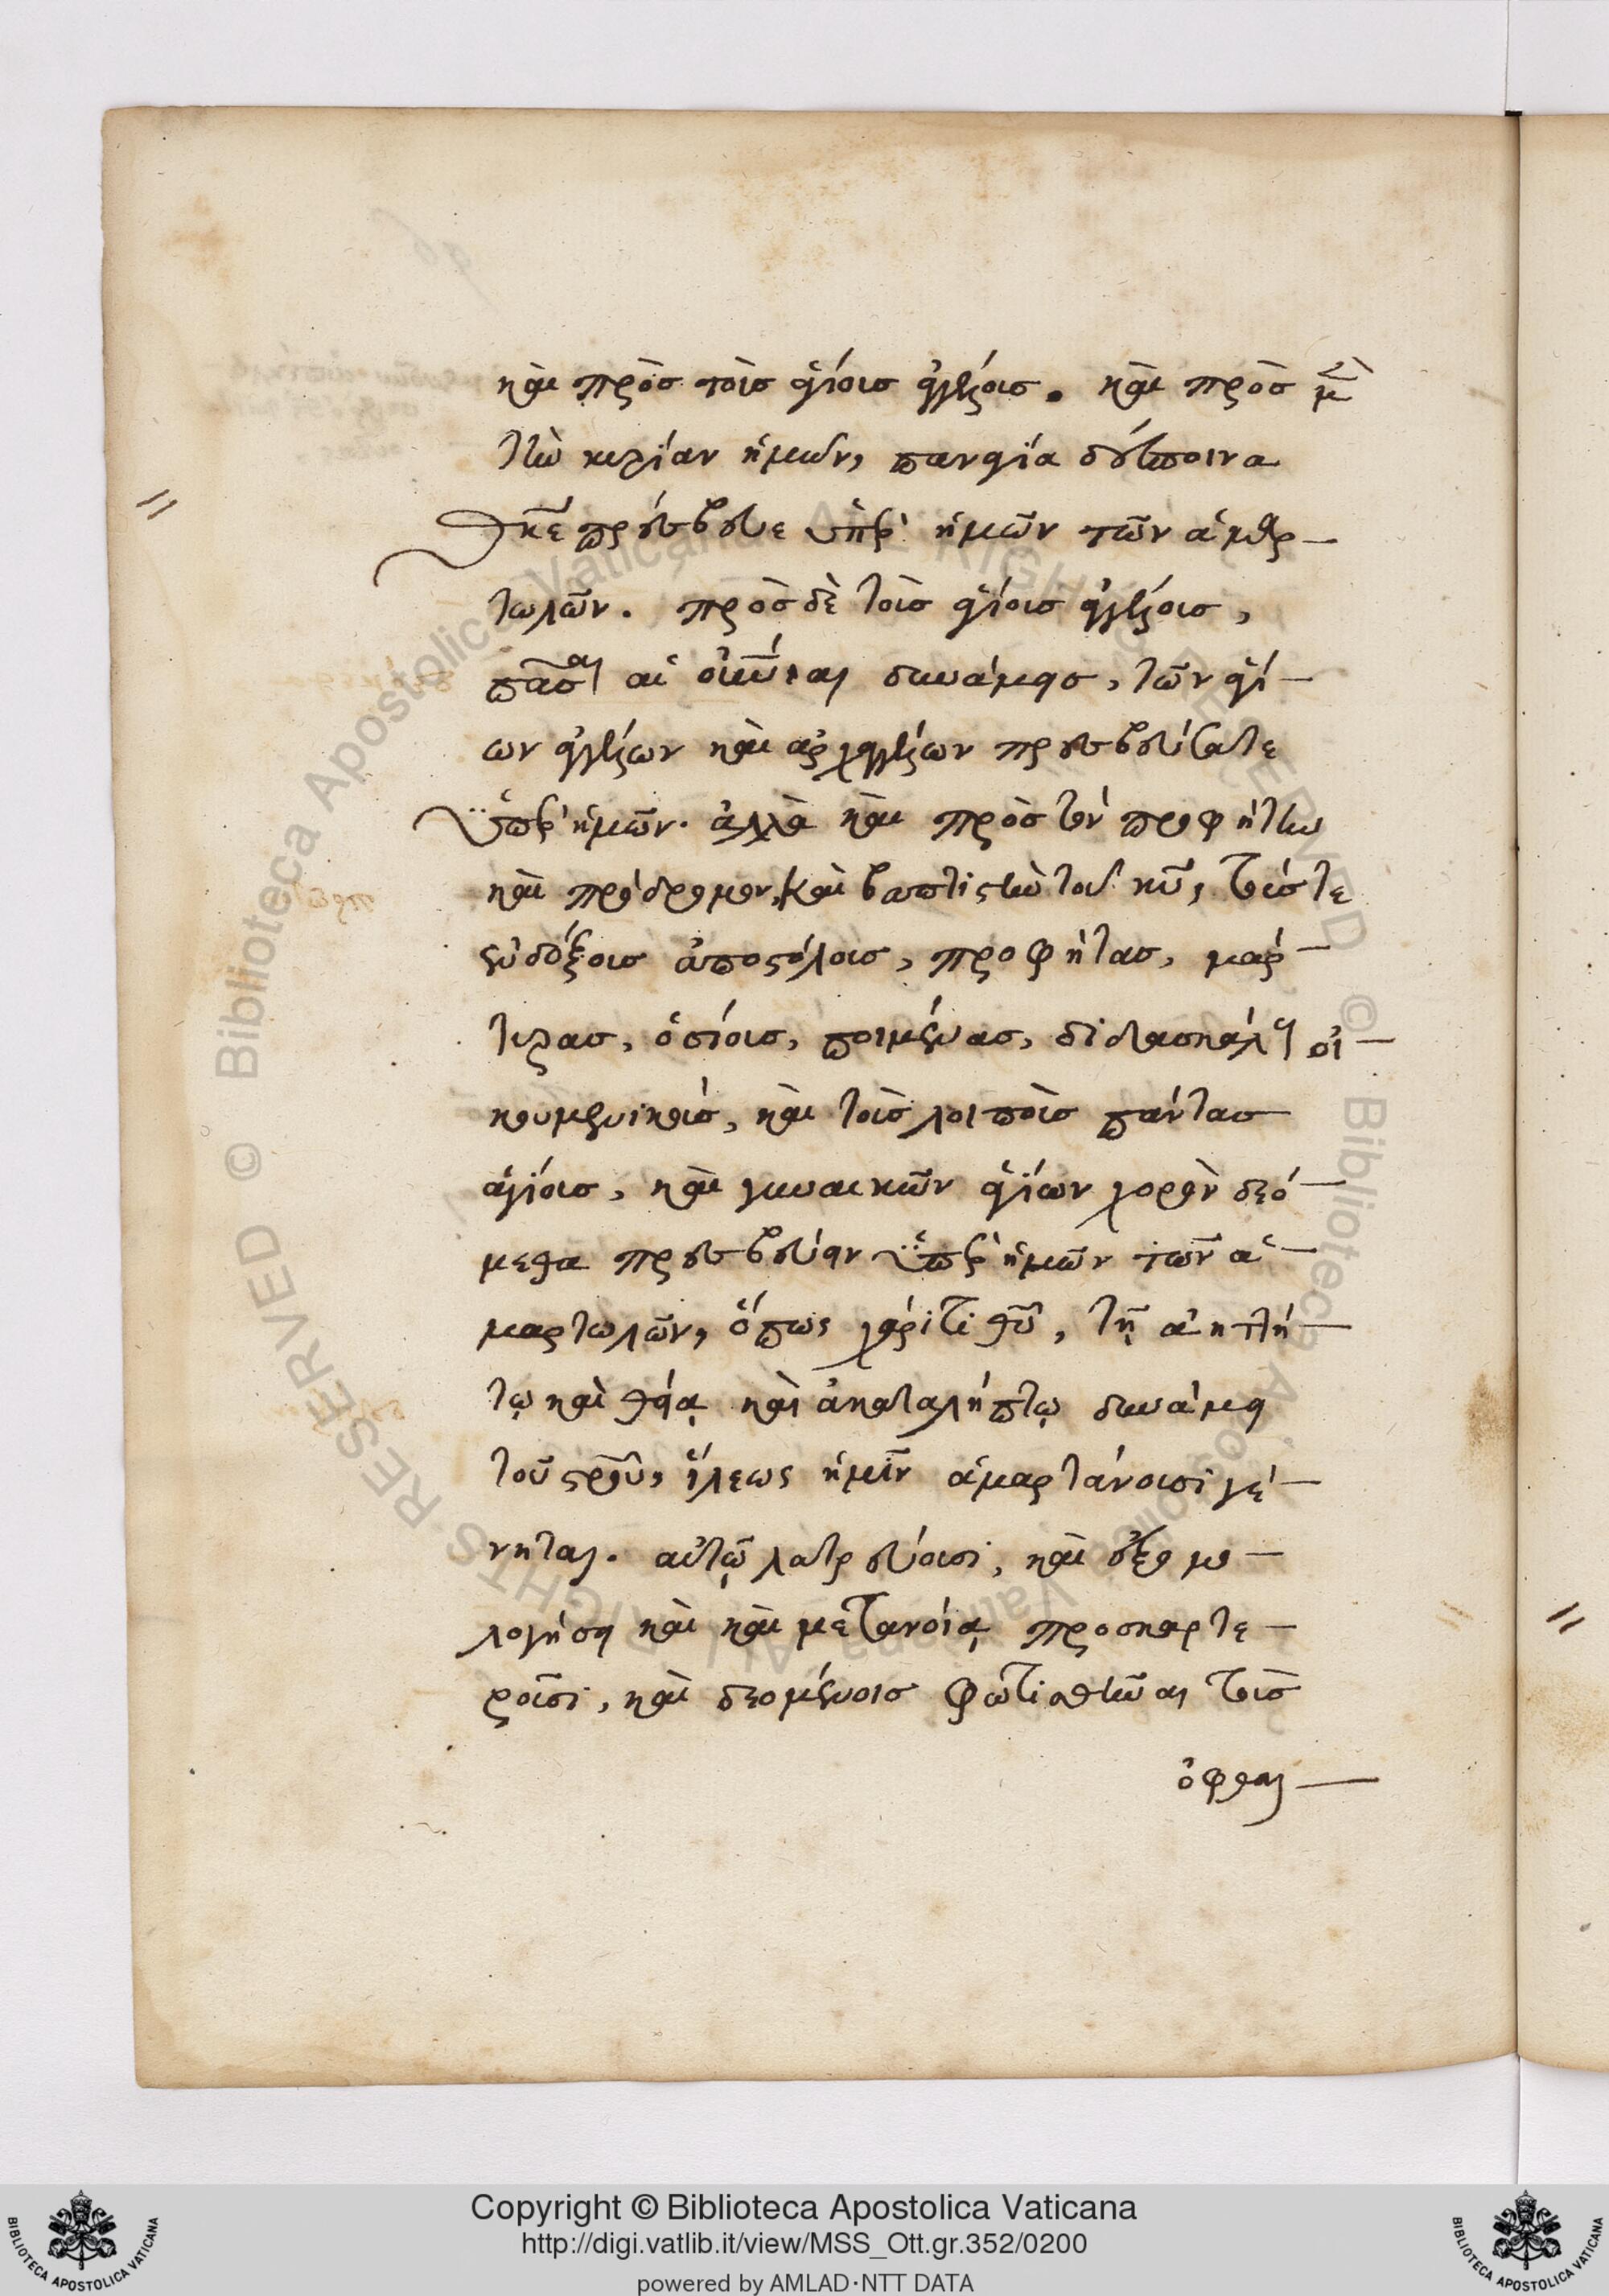 καὶ πρὸσ τοὺσ ἁγίουσ ἀγγέλουσ. καὶ πρὸσ μὲν
τὴν κυρίαν ἡμῶν, παναγία δέσποινα
θκε πρέσβευε ὑπὲρ ἡμῶν τῶν ἁμαρ
τωλῶν. πρὸσ δὲ τοὺσ ἁγίουσ ἀγγέλουσ,
πᾶσαι αἱ οὐνιαι δυνάμεισ, τῶν ἁγί
ων ἀγγέλων καὶ ἀρχαγγέλων πρεσβεύσατε
ὑπὲρ ἡμῶν. ἀλλὰ καὶ πρὸσ τὸν προφήτην
καὶ πρόδρομον, καὶ βαπτιστὴν τοῦ κυ, τούσ τε
ἐνδόξουσ ἀποστόλουσ, προφήτασ, μάρ
τυρασ, ὁσίουσ, ποιμένασ, διδασκάλουσ οἰ
κουμενικούσ, καὶ τοὺσ λοιποὺσ πάντασ
ἁγίουσ, καὶ γυναικῶν ἁγίων χορὸν δεό
μεθα πρεσβεύειν ὑπὲρ ἡμῶν τῶν ἁ
μαρτωλῶν, ὅπως χάριτι θυ, τῇ ἀηττή
τῳ καὶ θείᾳ καὶ ἀκαταλήπτῳ δυνάμει
τοῦ στρου, ἵλεως ἡμῖν ἁμαρτάνουσι γέ
νηται. αὐτῷ λατρεύουσι, καὶ ἐξομο
λογήσει καὶ καὶ μετανοίᾳ προσκαρτε
ροῦσι, καὶ δεομένοισ φωτισθῆναι τοὺσ
ὀφθαλ
Copyright © Biblioteca Apostolica Vaticana
http://digi.vatlib.it/view/MSS_Ott.gr.352/0200
powered by AMLAD·NTT DATA
BIBLIOTECA APOSTOLICA VATICANA
BIBLIOTECA APOSTOLICA VATICANA